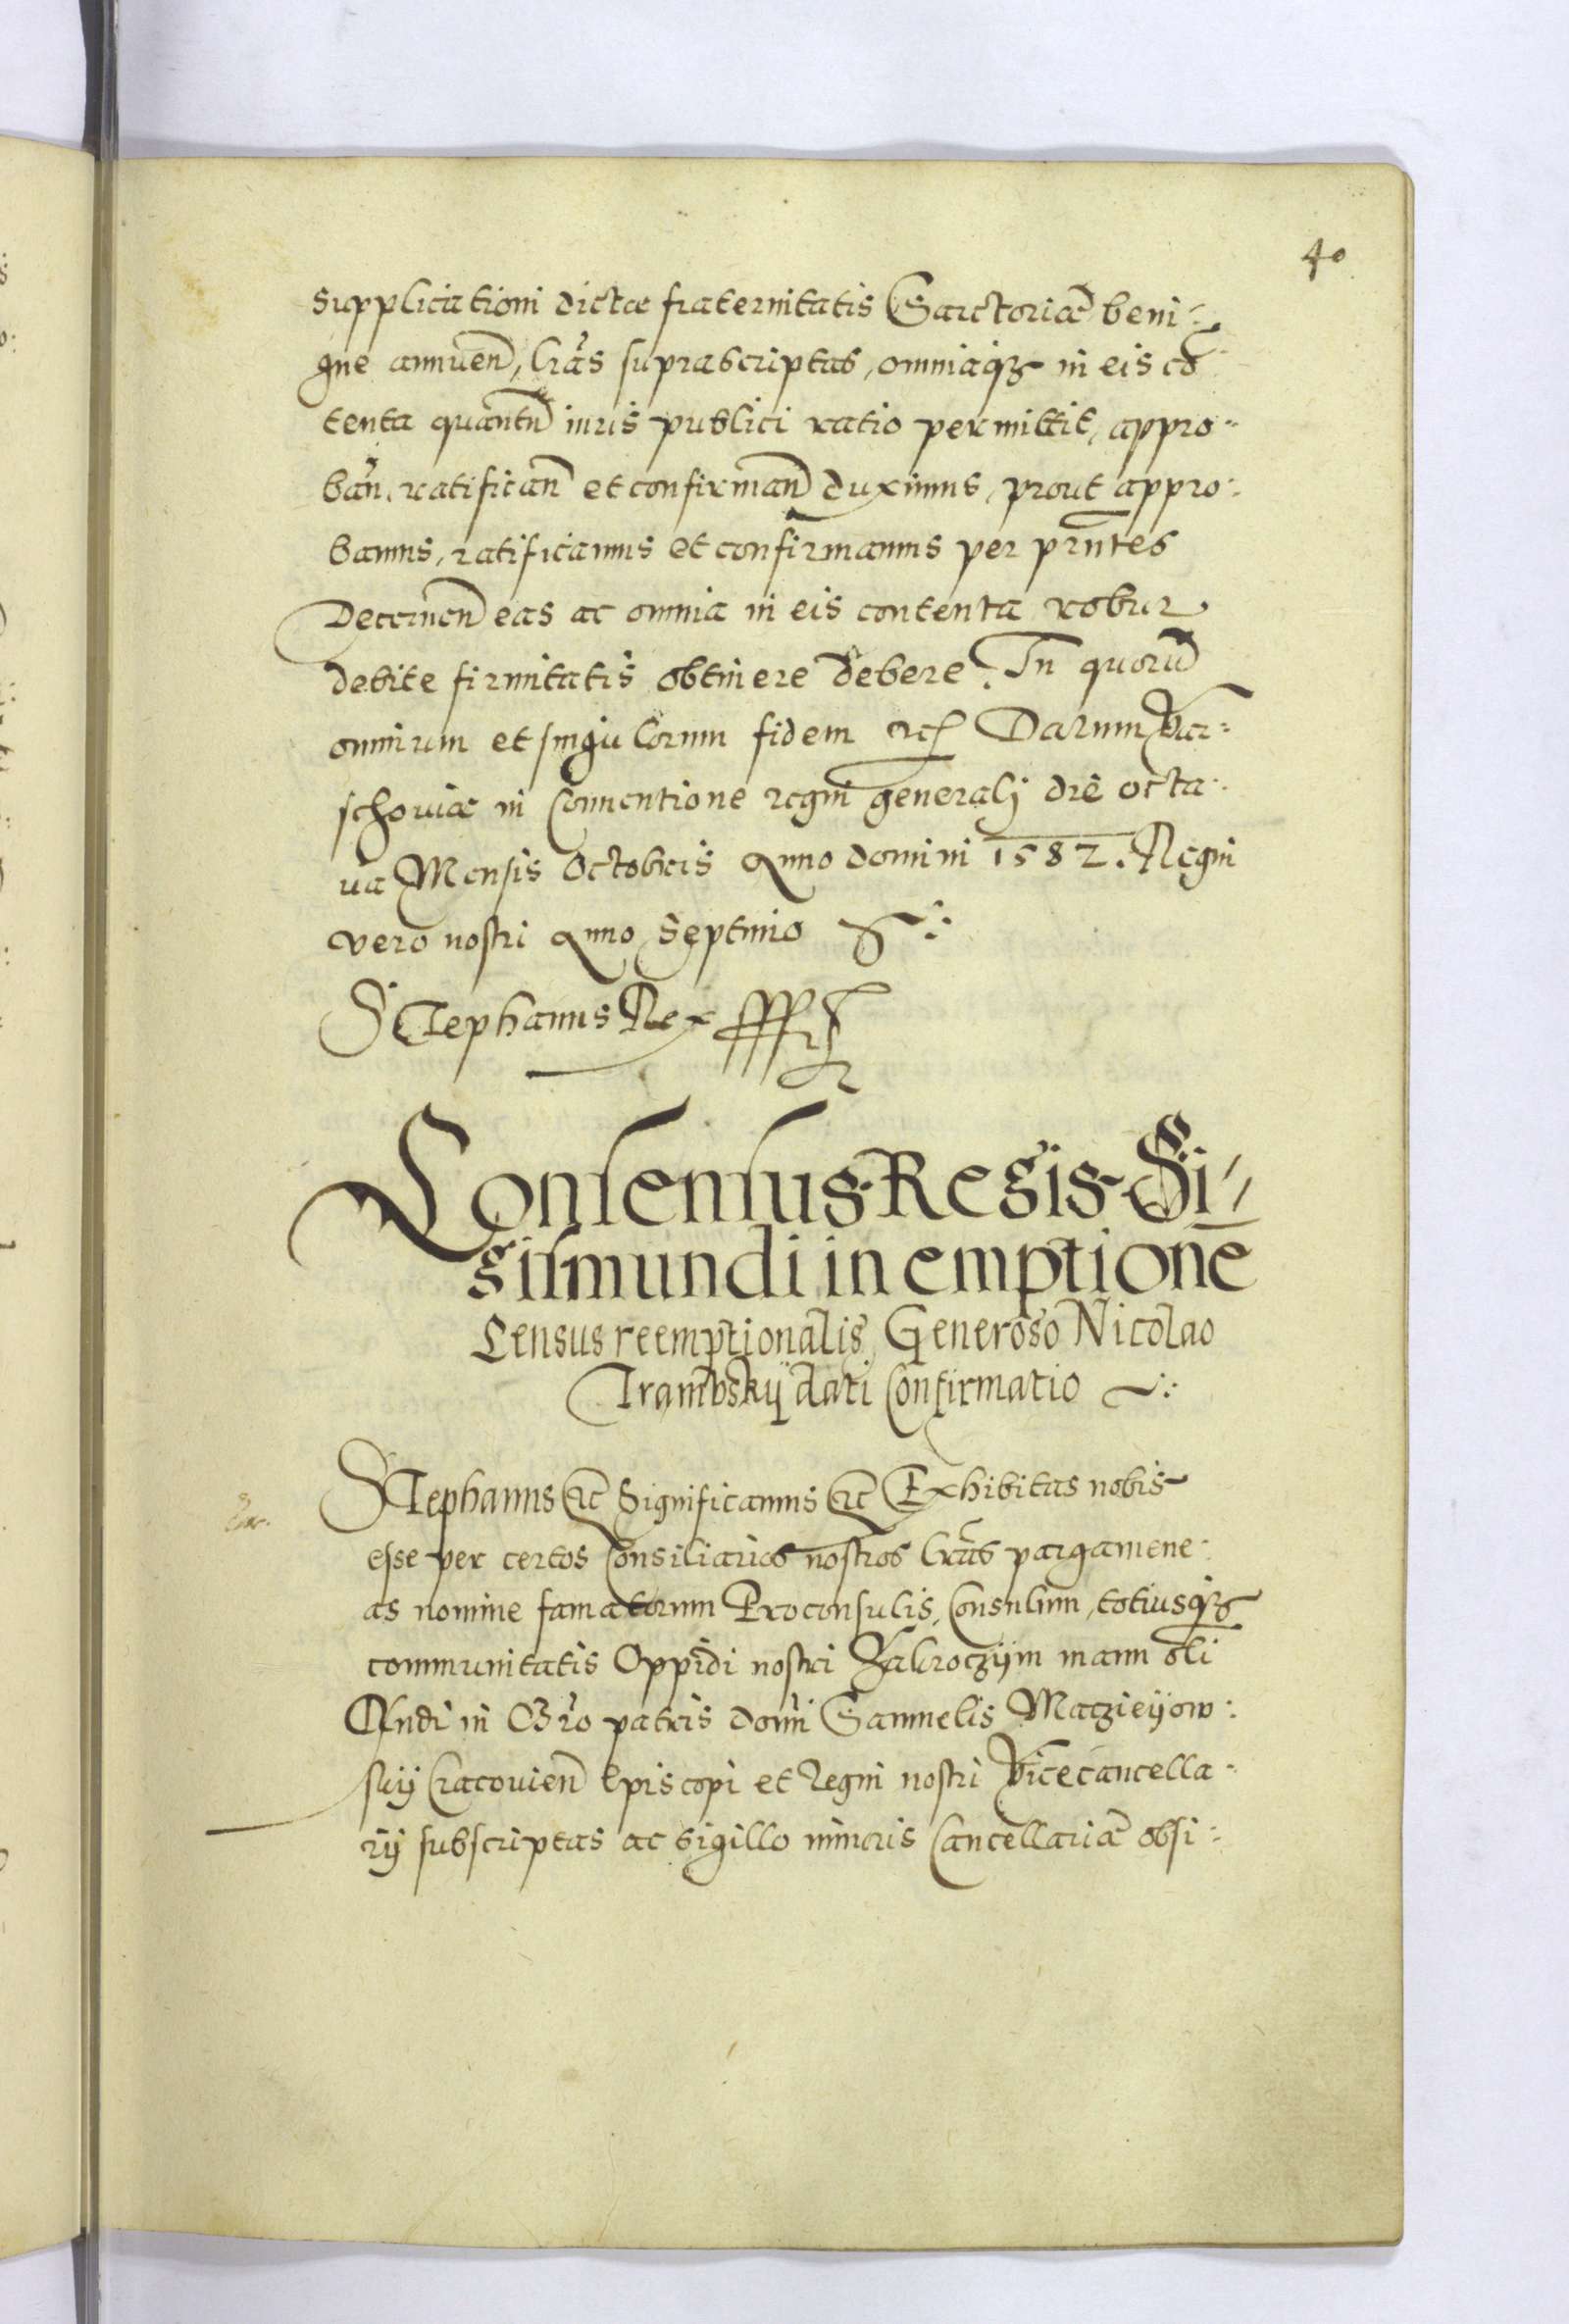 40
supplicationi dictae fraternitatis Sarctoriae beni-
gne annuen, lras suprascriptas, omniaq3 in eis cō
tenta quantū iuris publici ratio permittit, appro-
ban, ratifican et confirman duximus, prout appro-
bamus, ratificamus et confirmamus per pntes
Decernen eas ac omnia in eis contenta robur
debite firmitatis obtinere debere. In quorū
omnium et singulorum fidem etc Datum Var-
schoviae in Conventione regni generalj die octa-
va Mensis Octobris Anno domini 1582. Regni
vero nostri Anno Septimo
Stephanus Rex
Consensus Regis Si-
gismundi in emptione
Census reemptionalis Generoso Nicolao
Trambskij dati Confirmatio
Stephanus etc Significamus etc Exhibitas nobis
esse per certos Consiliarios nostros lras pargamene-
as nomine famatorum Proconsulis, Consulum, totiusq3
communitatis Oppidi nostri Zakroczÿm manu oli
Rndi in Chro patris domi Samuelis Maczieÿow-
skij Cracovien Episcopi et Regni nostri Vicecancella-
rij subscriptas ac sigillo minoris Cancellariae obsi-